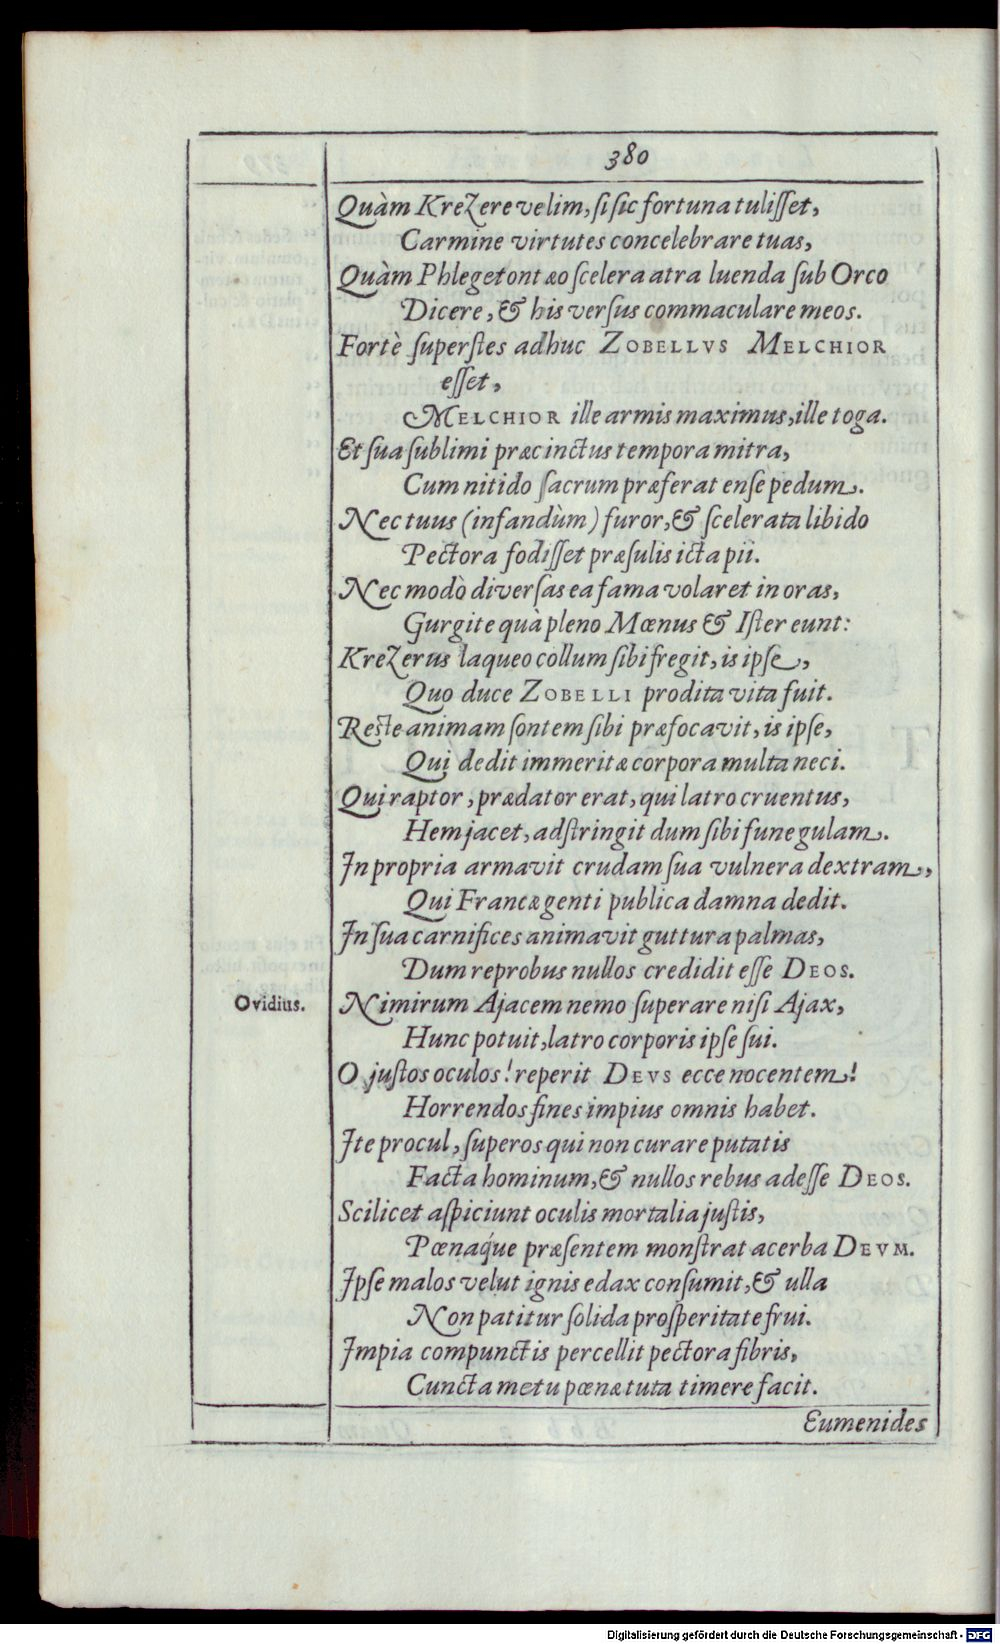 380
Quàm KreZere velim, si sic fortuna tulisset,
Carmine virtutes concelebrare tuas,
Quàm Phlegetontæo scelera atra luenda sub Orco
Dicere, & his versus commaculare meos.
Fortè superstes adhuc ZOBELLVS MELCHIOR
esset,
MELCHIOR ille armis maximus, ille toga.
Et sua sublimi præcinctus tempora mitra,
Cum nitido sacrum præferat ense pedum.
Nec tuus (infandùm) furor, & scelerata libido
Pectora fodisset præsulis icta pii.
Nec modò diversas ea fama volaret in oras,
Gurgite quà pleno Mœnus & Ister eunt:
KreZerus laqueo collum sibi fregit, is ipse,
Quo duce ZOBELLI prodita vita fuit.
Reste animam sontem sibi præfocavit, is ipse,
Qui dedit immeritæ corpora multa neci.
Qui raptor, prædator erat, qui latro cruentus,
Hem jacet, adstringit dum sibi fune gulam.
In propria armavit crudam sua vulnera dextram,
Qui Francæ genti publica damna dedit.
In sua carnifices animavit guttura palmas,
Dum reprobus nullos credidit esse DEOS.
Ovidius.
Nimirum Ajacem nemo superare nisi Ajax,
Hunc potuit, latro corporis ipse sui.
O justos oculos! reperit DEVS ecce nocentem!
Horrendos fines impius omnis habet.
Ite procul, superos qui non curare putatis
Facta hominum, & nullos rebus adesse DEOS.
Scilicet aspiciunt oculis mortalia justis,
Pœnaq́ue præsentem monstrat acerba DEVM.
Ipse malos velut ignis edax consumit, & ulla
Non patitur solida prosperitate frui.
Impia compunctis percellit pectora fibris,
Cuncta metu pœnæ tuta timere facit.
Eumenides
Digitalisierung gefördert durch die Deutsche Forschungsgemeinschaft - DFG